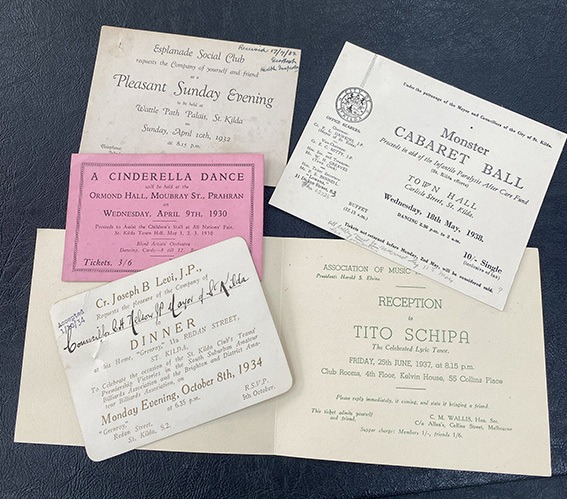 Esplanade Social Club
requests the Company of yourself and friend
at a
Pleasant Sunday Evening
to be held at
Wattle Path Palais, St. Kilda
on
Sunday, April 10th, 1932
at 8.15 p.m.
Under the patronage of the Mayor and Councillors of the City of St. Kilda.
Monster
CABARET BALL
Proceeds in aid of the Infantile Paralysis After Care Fund
(St. Kilda effort)
TOWN HALL
Carlisle Street, St. Kilda.
Wednesday, 18th May, 1938.
DANCING 8.30 p.m. to 2 a.m.
BUFFET
10/- Single
(inclusive of tax)
Tickets not returned before Monday, 2nd May, will be considered sold.
OFFICE BEARERS:
A CINDERELLA DANCE
will be held at the
ORMOND HALL, MOUBRAY ST., PRAHRAN
on
WEDNESDAY, APRIL 9TH, 1930
Proceeds to Assist the Children's Stall at All Nations' Fair,
St. Kilda Town Hall, May 1, 2, 3, 1930
Blind Artists' Orchestra
Tickets, 3/6
Cr. Joseph B. Levi, J.P.,
Requests the Pleasure of the Company of
Mayor of St Kilda
to
DINNER
at his Home, "Germroy," 11a REDAN STREET,
ST. KILDA,
To Celebrate the occasion of the St. Kilda Club's Teams'
Premiership Victories in the South Suburban Amateur
Billiards Association and the Brighton and District Ama-
teur Billiards Association, on
Monday Evening, October 8th, 1934
at 6.35 p.m.
"Germroy,"
Redan Street,
St. Kilda, S.2.
R.S.V.P.
5th October.
ASSOCIATION OF MUSIC
President: Harold S. Elvins
RECEPTION
to
TITO SCHIPA
The Celebrated Lyric Tenor.
FRIDAY, 25th JUNE, 1937, at 8.15 p.m.
Club Rooms, 4th Floor, Kelvin House, 55 Collins Place
Please reply immediately, if coming, and state if bringing a friend.
This ticket admits yourself
and friend.
C. M. WALLIS, Hon. Sec.
C/o Allan's, Collins Street, Melbourne
Supper charge: Members 1/-, friends 1/6.